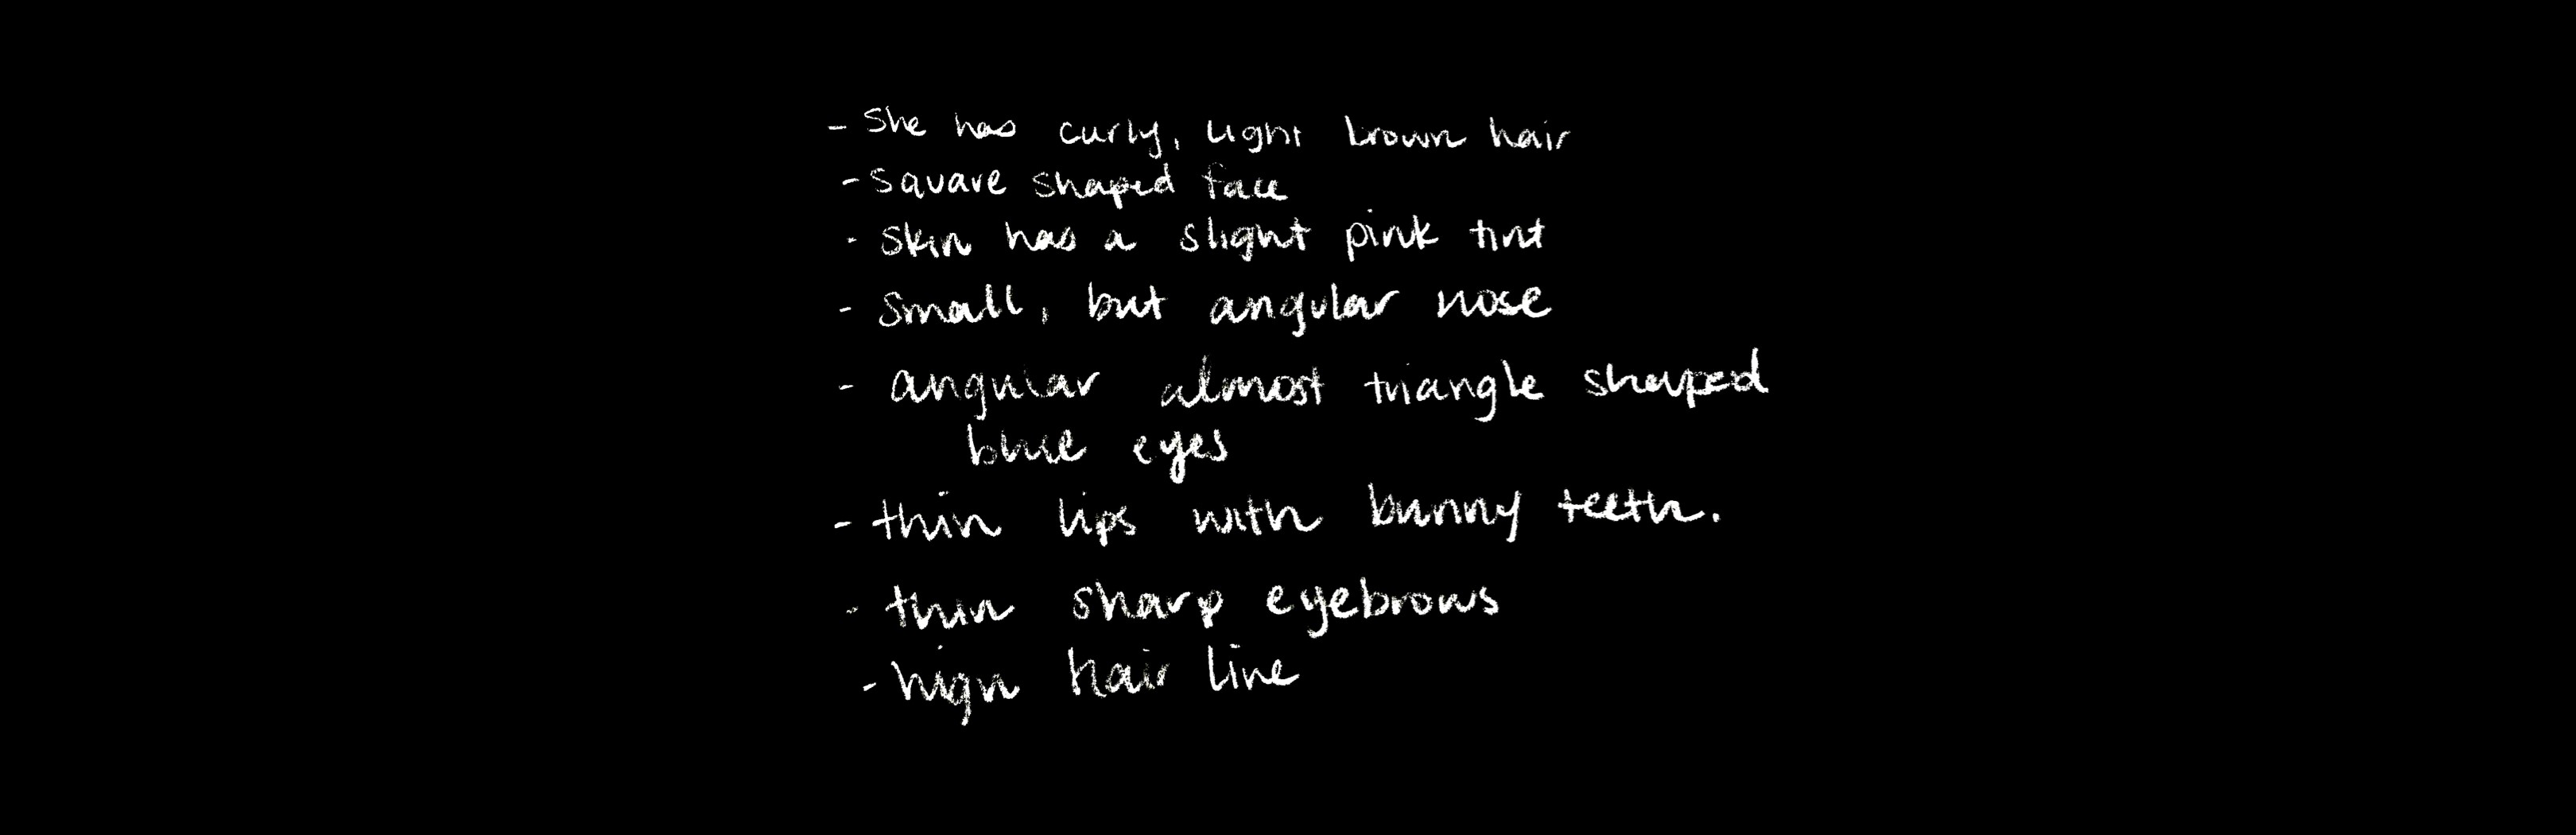 - She has curly, light brown hair
- square shaped face
- skin has a slight pink tint
- small, but angular nose
- angular almost triangle shaped
blue eyes
- thin lips with bunny teeth.
- thin sharp eyebrows
- high hair line